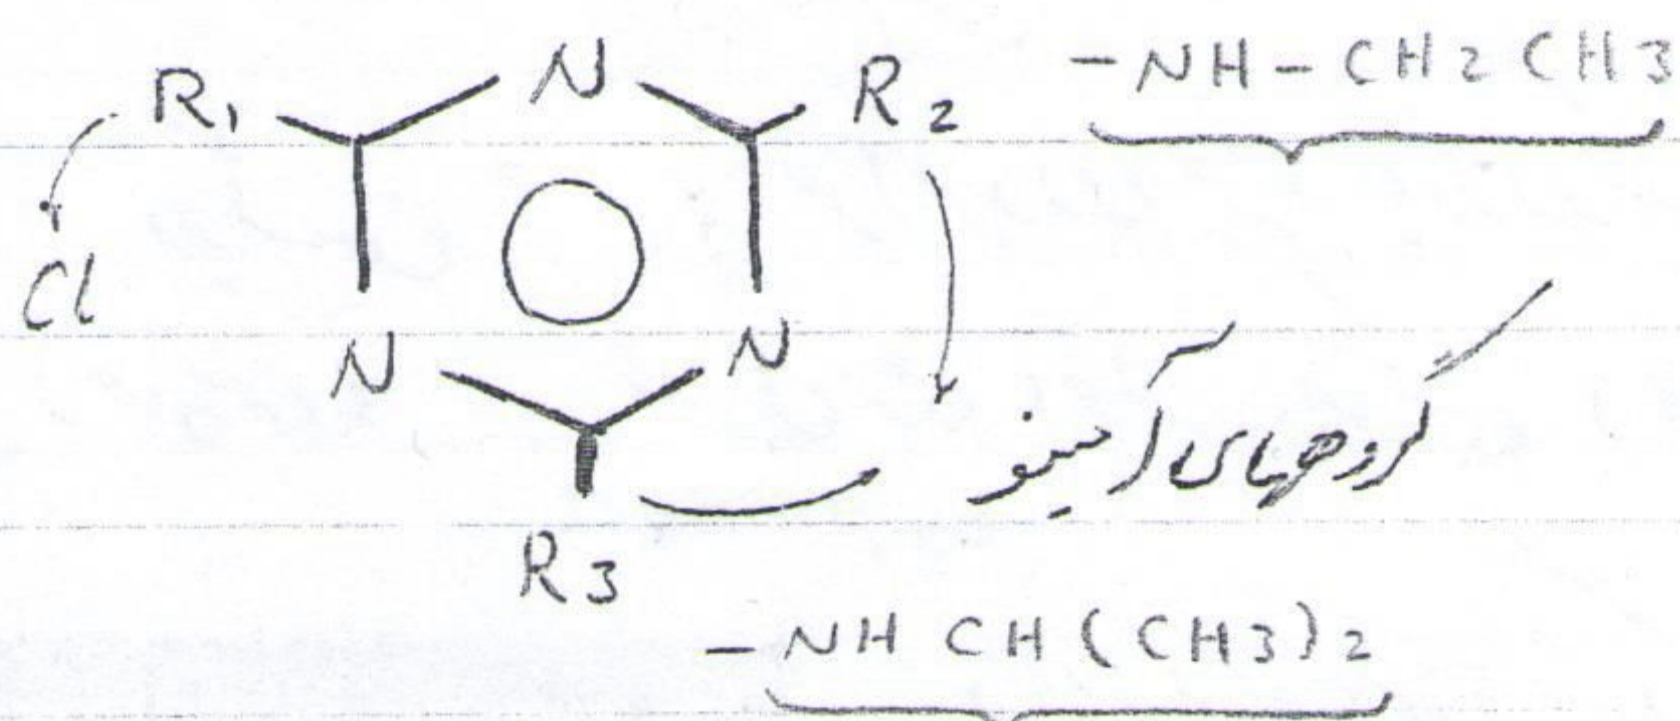 R1 N R2 -NH-CH2CH3
Cl
N N
گروههای آمینو
R3
-NH CH(CH3)2